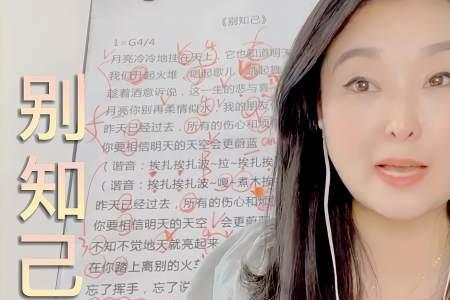 《别知己》
1=G4/4
月亮冷冷地挂在天上，它也知道明天
我们升起火堆，唱起歌儿，跳起舞
趁着酒意诉说，这一生的悲与喜
月亮你别再柔情似水，我的朋友
昨天已经过去，所有的伤心和烦恼
你要相信明天的天空会更蔚蓝
（谐音：挨扎挨扎波~拉~挨扎挨
（谐音：挨扎挨扎波~嗖~煮木挨
昨天已经过去，所有的伤心和烦
你要相信明天的天空 会更蔚蓝
不知不觉地天就亮起来
在你踏上离别的火车
忘了挥手，忘了说
别知己